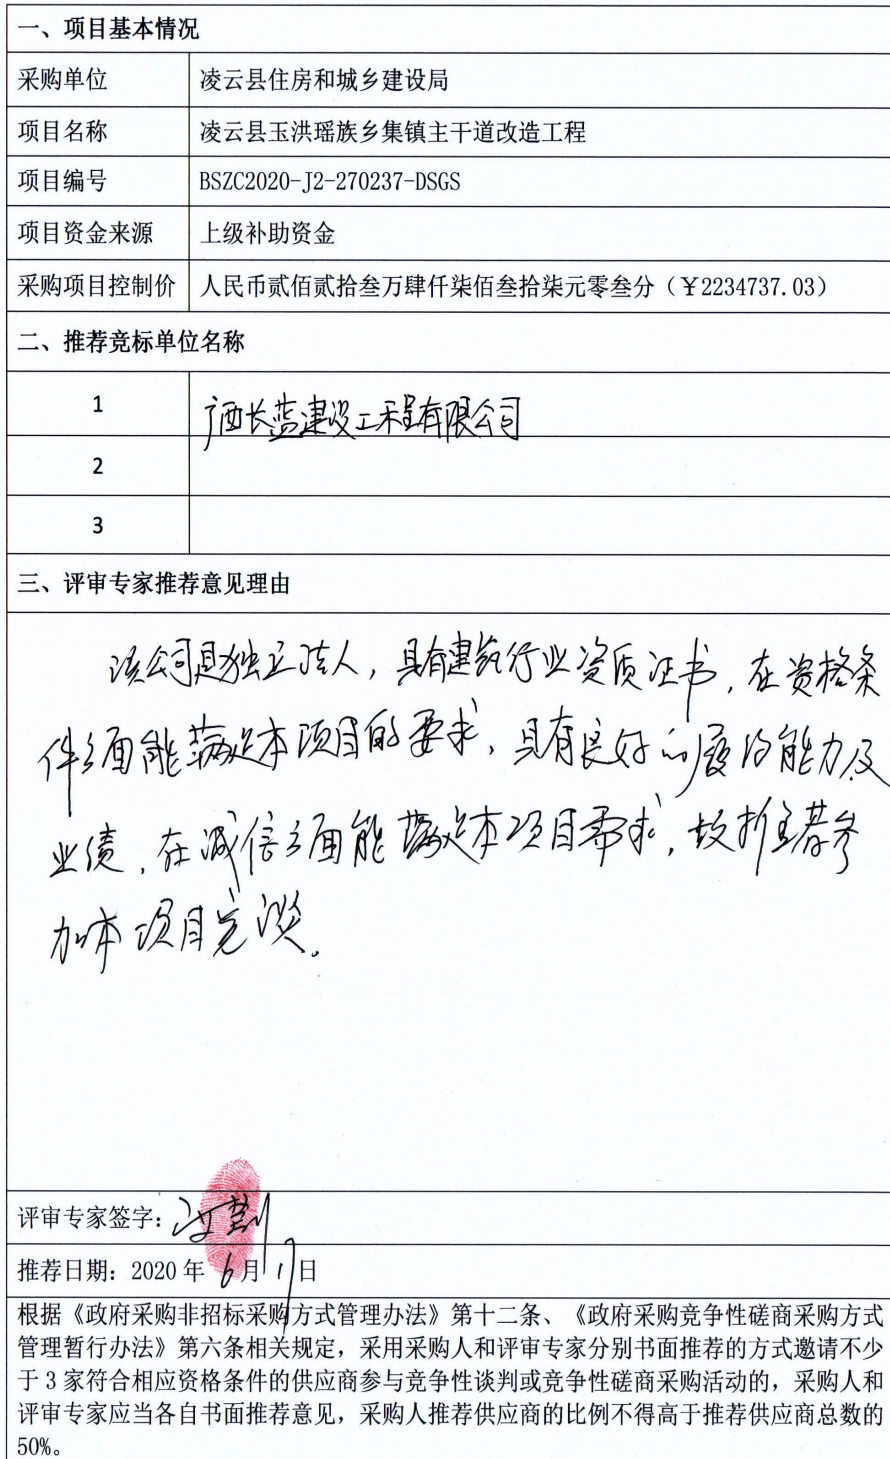 一、项目基本情况
采购单位 凌云县住房和城乡建设局
项目名称 凌云县玉洪瑶族乡集镇主干道改造工程
项目编号 BSZC2020-J2-270237-DSGS
项目资金来源 上级补助资金
采购项目控制价 人民币贰佰贰拾叁万肆仟柒佰叁拾柒元零叁分（￥2234737.03）
二、推荐竞标单位名称
1 广西长蓝建设工程有限公司
2
3
三、评审专家推荐意见理由
该公司是独立法人，具有建筑行业资质证书，在资格条
件方面能满足本项目的要求，具有良好的履约能力及
业绩，在诚信方面能满足本项目需求，故推荐参
加本项目竞谈。
评审专家签字：
推荐日期：2020年6月17日
根据《政府采购非招标采购方式管理办法》第十二条、《政府采购竞争性磋商采购方式
管理暂行办法》第六条相关规定，采用采购人和评审专家分别书面推荐的方式邀请不少
于3家符合相应资格条件的供应商参与竞争性谈判或竞争性磋商采购活动的，采购人和
评审专家应当各自书面推荐意见，采购人推荐供应商的比例不得高于推荐供应商总数的
50%。